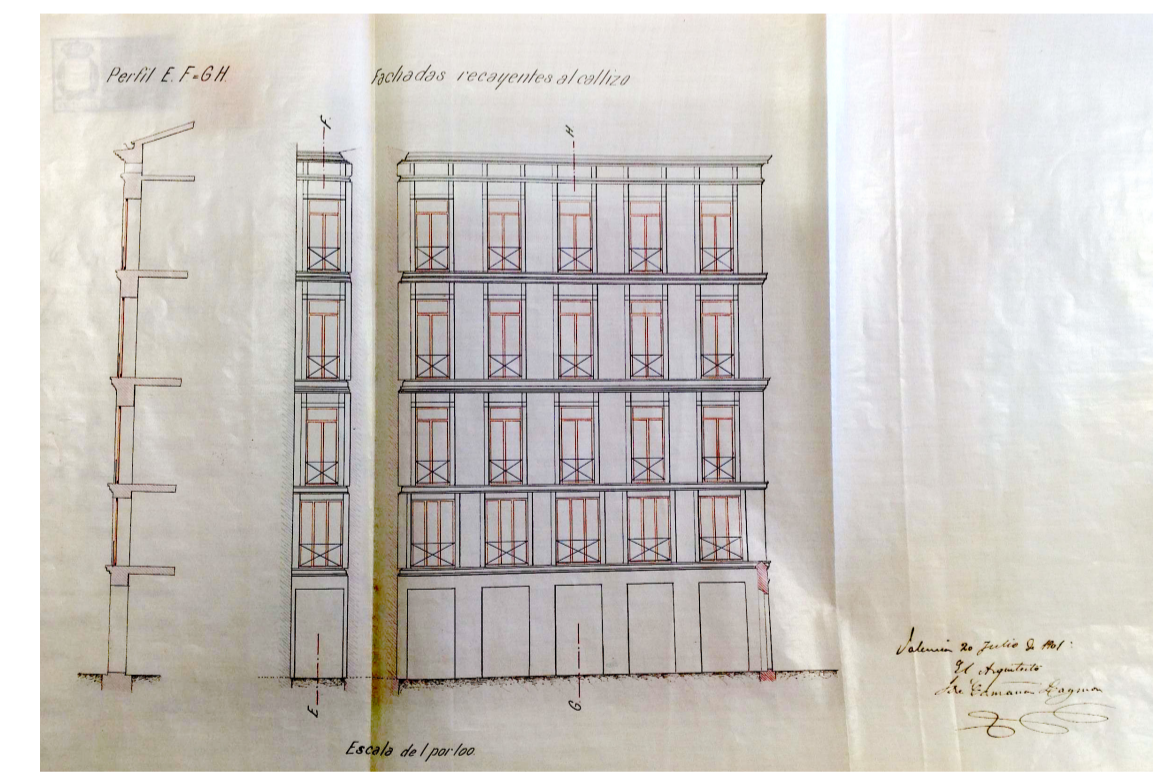 Perfil E. F=G H.
Fachadas recayentes al callizo
F.
H
E
G.
Escala de 1 por 100
Valencia 20 Julio de 1901.
El Arquitecto
José Camaña Laymon